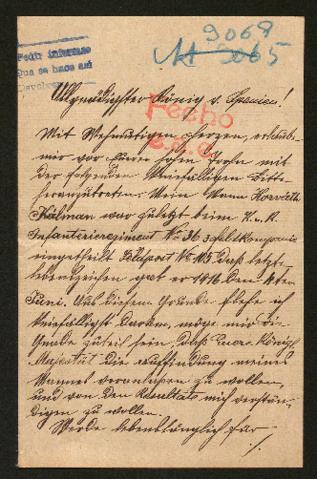 Pedir informes
Que se hace así
Devolver
9069
3065
Allgnädigster König v. Spanien!
Fecho
e.e.e.
Mit Wehmütigen Herzen, erlaube
mir vor Eurer hohen Trohn mit
der folgenden kniefälligen Bitte
heranzutreten: Mein Mann Horváth
Kálmán war zuletzt beim K. u. K.
Infanterieregiment No 36 3 feldkompanie
eingetheilt Feldpost No 115. Das letzte
lebenszeichen gab er 1916 den 4ten
Juni. Aus diesem Grunde flehe ich
kniefälligst Darum, möge mir die
Gnade zuteil sein, daß Euere Königl.
Majestät die auffindung meines
Mannes veranlassen zu wollen,
und von den Resultats mich verstän-
digen zu wollen.
Werde lebenslänglich für